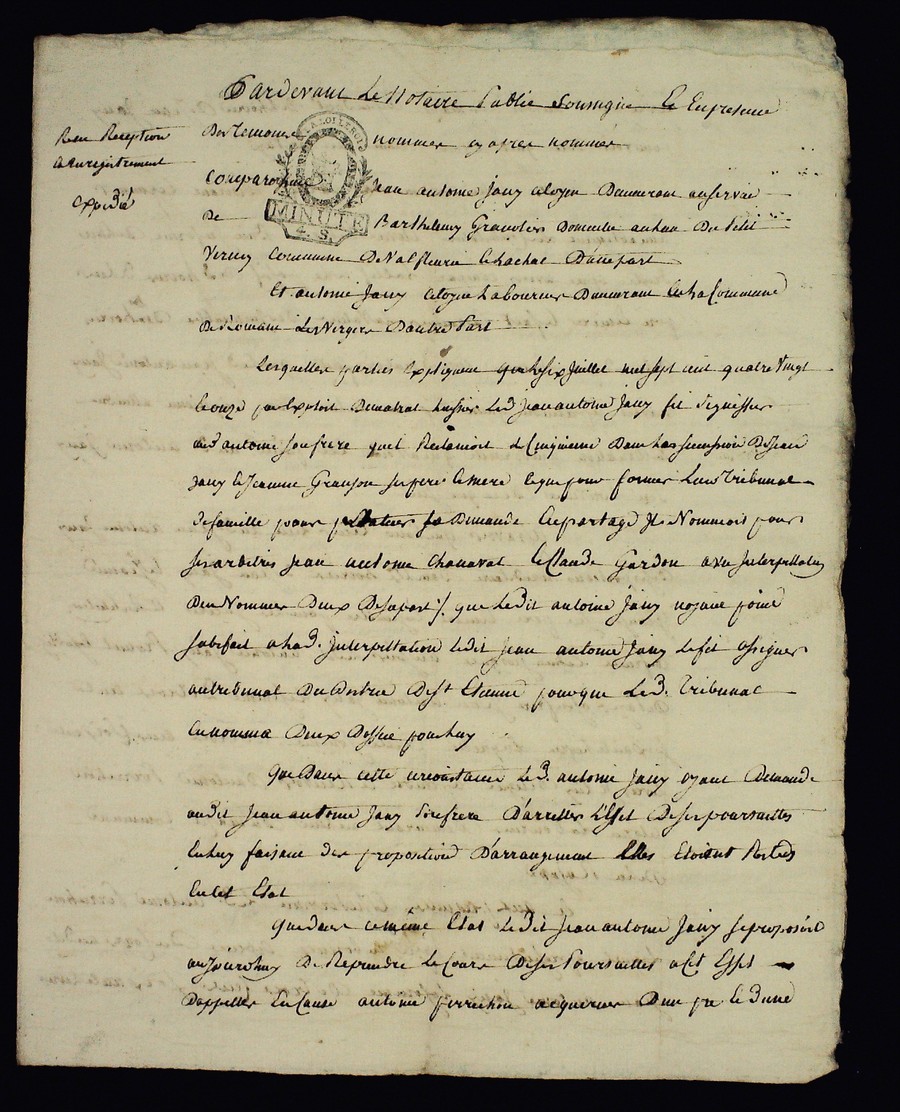 Pardevant Le Notaire Public Soussigné Et En presence
Des Temoins nommés cy apres nommés
Reçu Reception
Et Enregistrement
expédié
LA LOI ET LE ROI
MINUTE
4. S.
Comparoissent Jean antoine Jany Citoyen Demeurant au service
De Barthelemy Domicilié au lieu Du Petit
Verney Commune De Valfleurie Et Dune part
Et antoine Jany Citoyen Laboureur Demeurant En La Commune
De St Romain Les Vergers Dautre Part
Lesquelles parties Expliquent que Le six Juillet mil sept cent quatre vingt
Et onze par Exploit Huissier Led. Jean antoine Jany fit signiffier
aud. antoine Son frere quil Reclamoit Le Cinquieme Dans La succession De Jean
Jany Et Jeanne Granjon ses pere Et mere Et que pour former Leur Tribunal
De famille, pour sa Demande En partage Il Nommoit pour
ses arbitres Jean antoine Chanavat Et Claude Gardon avec Interpellation
Den Nommer Deux De sa part /. que Ledit antoine Jany nayant point
satisfait a Lad. Interpellation Ledit Jean antoine Jany Le fit assigner
au tribunal Du District De St Etienne pour que Led. Tribunal
En nomma Deux Doffice pour Luy
Que Dans cette circonstance Led. antoine Jany ayant Demandé
audit Jean antoine Jany Son frere D'arretter L'Effet De ses poursuittes
En Luy faisant des propositions D'arrangement Elles Etoient Restées
En Cet Etat
Que dans ce même Etat Le dit Jean antoine Jany se proposoit
aujourdhuy De Reprendre Le Cours De ses Poursuittes a Cet Effet
Dappeller En Cause antoine acquereur Dun pré Et Dune